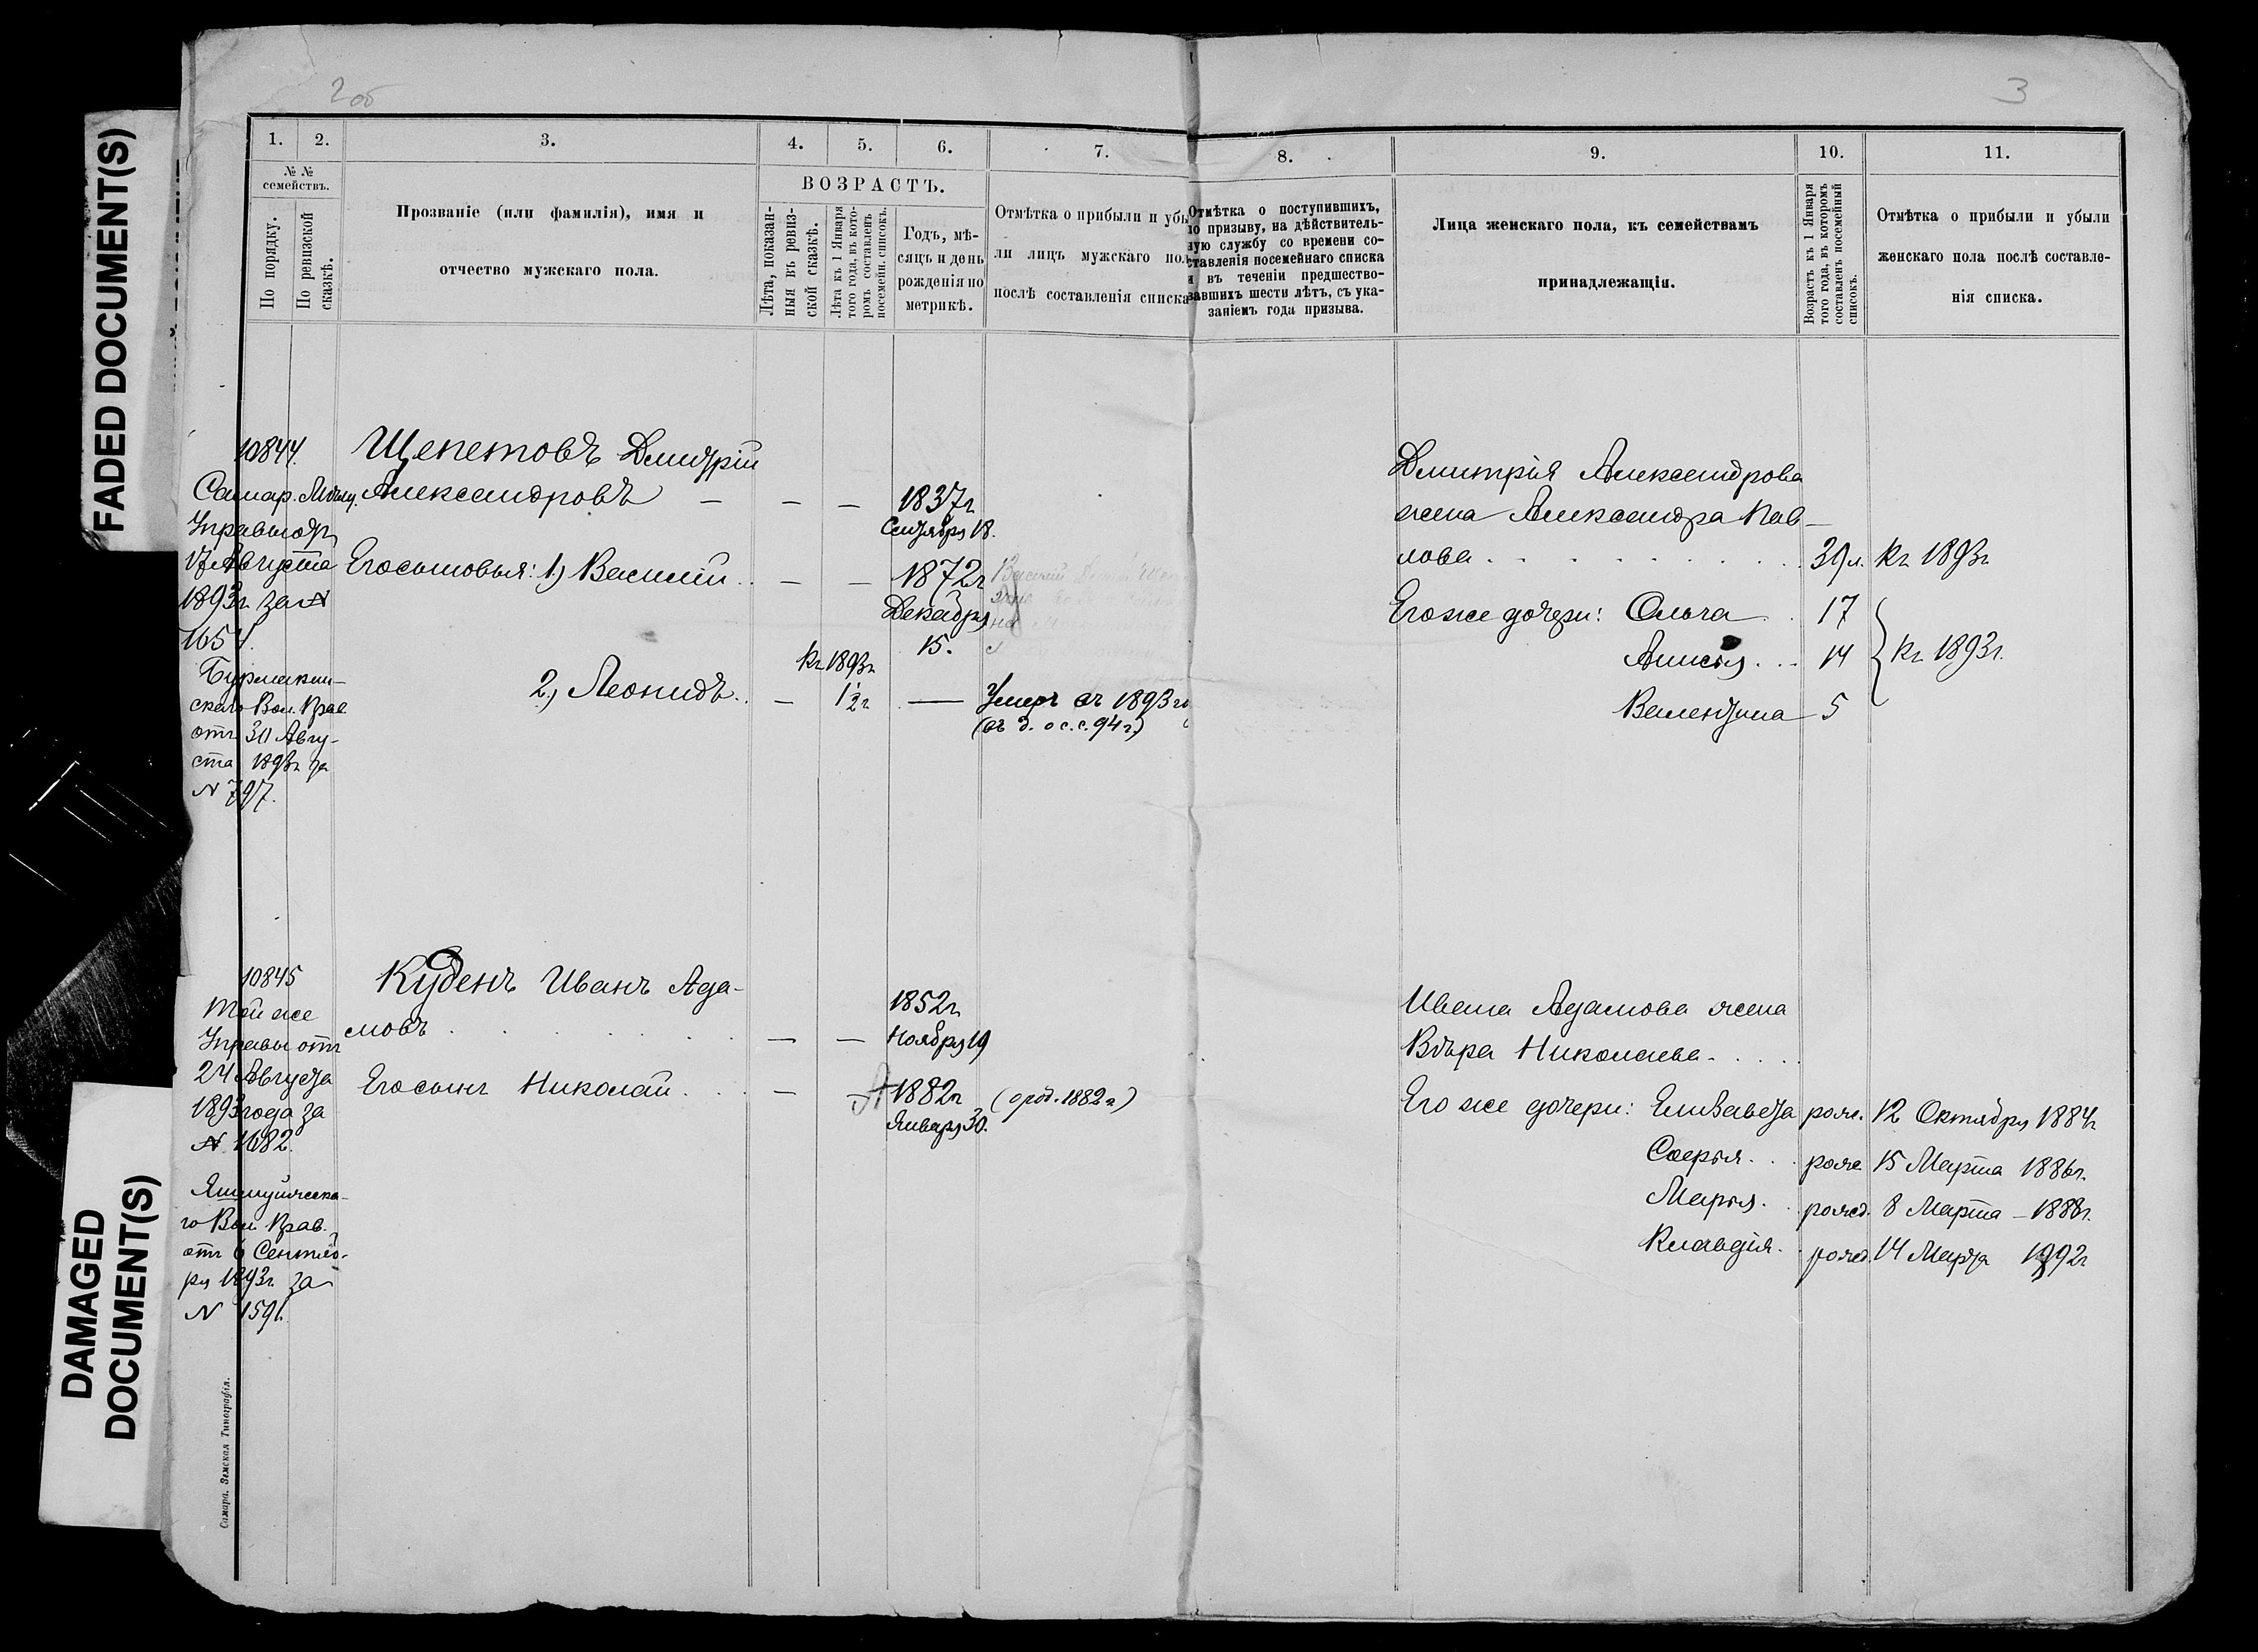 2 об
3
FADED DOCUMENT(S)
DAMAGED
DOCUMENT(S)
1.
2.
3.
4.
5.
6.
7.
8.
9.
10.
11.
№ №
семействъ.
По порядку.
По ревизской
сказкѣ.
Прозваніе (или фамилія), имя и
отчество мужскаго пола.
ВОЗРАСТЪ.
Лѣта, показан-
ныя въ ревиз-
ской сказкѣ.
Лѣта къ 1 Января
того года, въ кото-
ромъ составленъ
посемейн. списокъ.
Годъ, мѣ-
сяцъ и день
рожденія по
метрикѣ.
Отмѣтка о прибыли и убы
ли лицъ мужскаго пол
послѣ составленія списка
Отмѣтка о поступившихъ,
по призыву, на дѣйствитель-
ную службу со времени со-
ставленія посемейнаго списка
и въ теченіи предшество-
вавшихъ шести лѣтъ, съ ука-
заніемъ года призыва.
Лица женскаго пола, къ семействамъ
принадлежащія.
Возрастъ къ 1 Января
того года, въ которомъ
составленъ посемейный
списокъ.
Отмѣтка о прибыли и убыли
женскаго пола послѣ составле-
нія списка.
10844.
Самар. Мѣщ.
Управы отъ
17 Августа
1893г. за №
1654.
Бурмакин-
скаго Вол. Прав
отъ 30 Авгу-
ста 1893г. за
N 797.
Щепетовъ Дмитрій
Александровъ — — —
1837г
Сентября 18.
Его сыновья: 1) Василій . . — —
1872г
Декабря
15.
Къ 1893г
2) Леонидъ . . — 1/2 г —
Умеръ въ 1893 г
(въ д. о с. с. 94 г.)
Дмитрія Александрова
жена Александра Пав-
лова . . . . . . . . 39 л. Къ 1893г
Его же дочери: Ольга . 17
Анисія . . . 14 Къ 1893г.
Валентина 5
10845
Той же
Управы отъ
24 Августа
1893 года за
№ 1682.
го Вол. Прав.
отъ 6 Сентяб-
ря 1893г. за
N 1591.
Куденъ Иванъ Ада-
мовъ . . . . . . — —
1852г
Ноября 19
Его сынъ Николай . . . —
1882г
Января 30.
(о род. 1882 г.)
Ивана Адамова жена
Вѣра Николаева . . . . .
Его же дочери: Елизавета рожд. 12 Октября 1884г
Софья . . . рожд 15 Марта 1886г.
Марья . . рожд. 8 Марта — 1888г.
Клавдія . . рожд. 14 Марта 1892г
Самара. Земская Типографія.